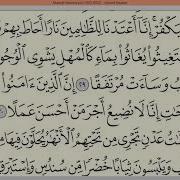 يَكْفُرْ إِنَّآ أَعْتَدْنَا لِلظَّـٰلِمِينَ نَارًا أَحَاطَ بِهِمْ
تَغِيثُوا۟ يُغَاثُوا۟ بِمَآءٍ كَٱلْمُهْلِ يَشْوِى ٱلْوُجُو
وَسَآءَتْ مُرْتَفَقًا ٢٩ إِنَّ ٱلَّذِينَ ءَامَنُوا۟
حَـٰتِ إِنَّا لَا نُضِيعُ أَجْرَ مَنْ أَحْسَنَ عَمَلًا
تُ عَدْنٍ تَجْرِى مِن تَحْتِهِمُ ٱلْأَنْهَـٰرُ يُحَلَّوْنَ فِيهَا
بٍ وَيَلْبَسُونَ ثِيَابًا خُضْرًا مِّن سُندُسٍ وَإِسْتَبْرَقٍ